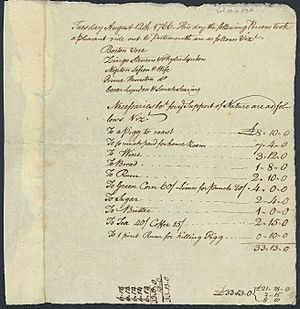 Tuesday August 12th 1766. This day the following Persons took
a pleasant ride out to Portsmouth are as follows Vizt
Boston Vose
Lingo Stevens & Phylis Lyndon
Nepton Sipson & Wife
Prince Thurston &
Cesar Lyndon & Sarah Searing
Necessaries bot for ye Support of Nature are as fol
lows Vizt
To a pigg to roast £8-10-0
To so much paid for house Room 7-4-0
To Wine 3-12-0
To Bread 1-8-0
To Rum 2-10-0
To Green Corn 60/ Limes for punch 20/ 4-0-0
To Sugar 2-4-0
To Butter 1-0-0
To Tea 40/ Coffee 15/ 2-15-0
To 1 pint Rum for killing Pigg 0-10-0
33-13-0
£33-13-0
£21-18-0